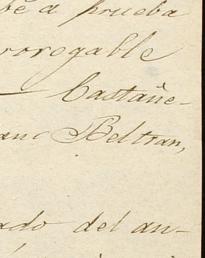 be a prueba
rrogable
— Castañe-
ano Beltran,
ado del an-